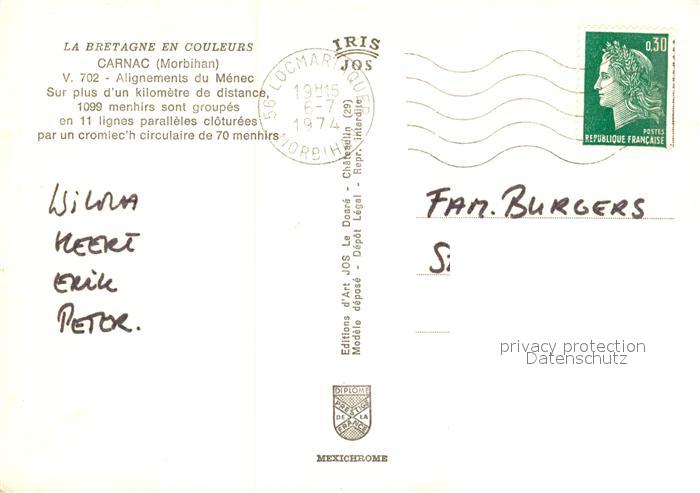 LA BRETAGNE EN COULEURS
CARNAC (Morbihan)
V. 702 - Alignements du Ménec
Sur plus d'un kilomètre de distance,
1099 menhirs sont groupés
en 11 lignes parallèles clôturées
par un cromlec'h circulaire de 70 menhirs
WILMA
MEERT
ERIK
PETER.
IRIS
JOS
56 LOCMARIAQUER
19H15
6-7
1974
MORBIHAN
Editions d'Art JOS Le Doaré - Châteaulin (29)
Modèle déposé - Dépôt Légal - Repr. interdite
DIPLOME
PRESTIGE
DE LA
FRANCE
MEXICHROME
0,30
POSTES
REPUBLIQUE FRANÇAISE
FAM. BURGERS
privacy protection
Datenschutz